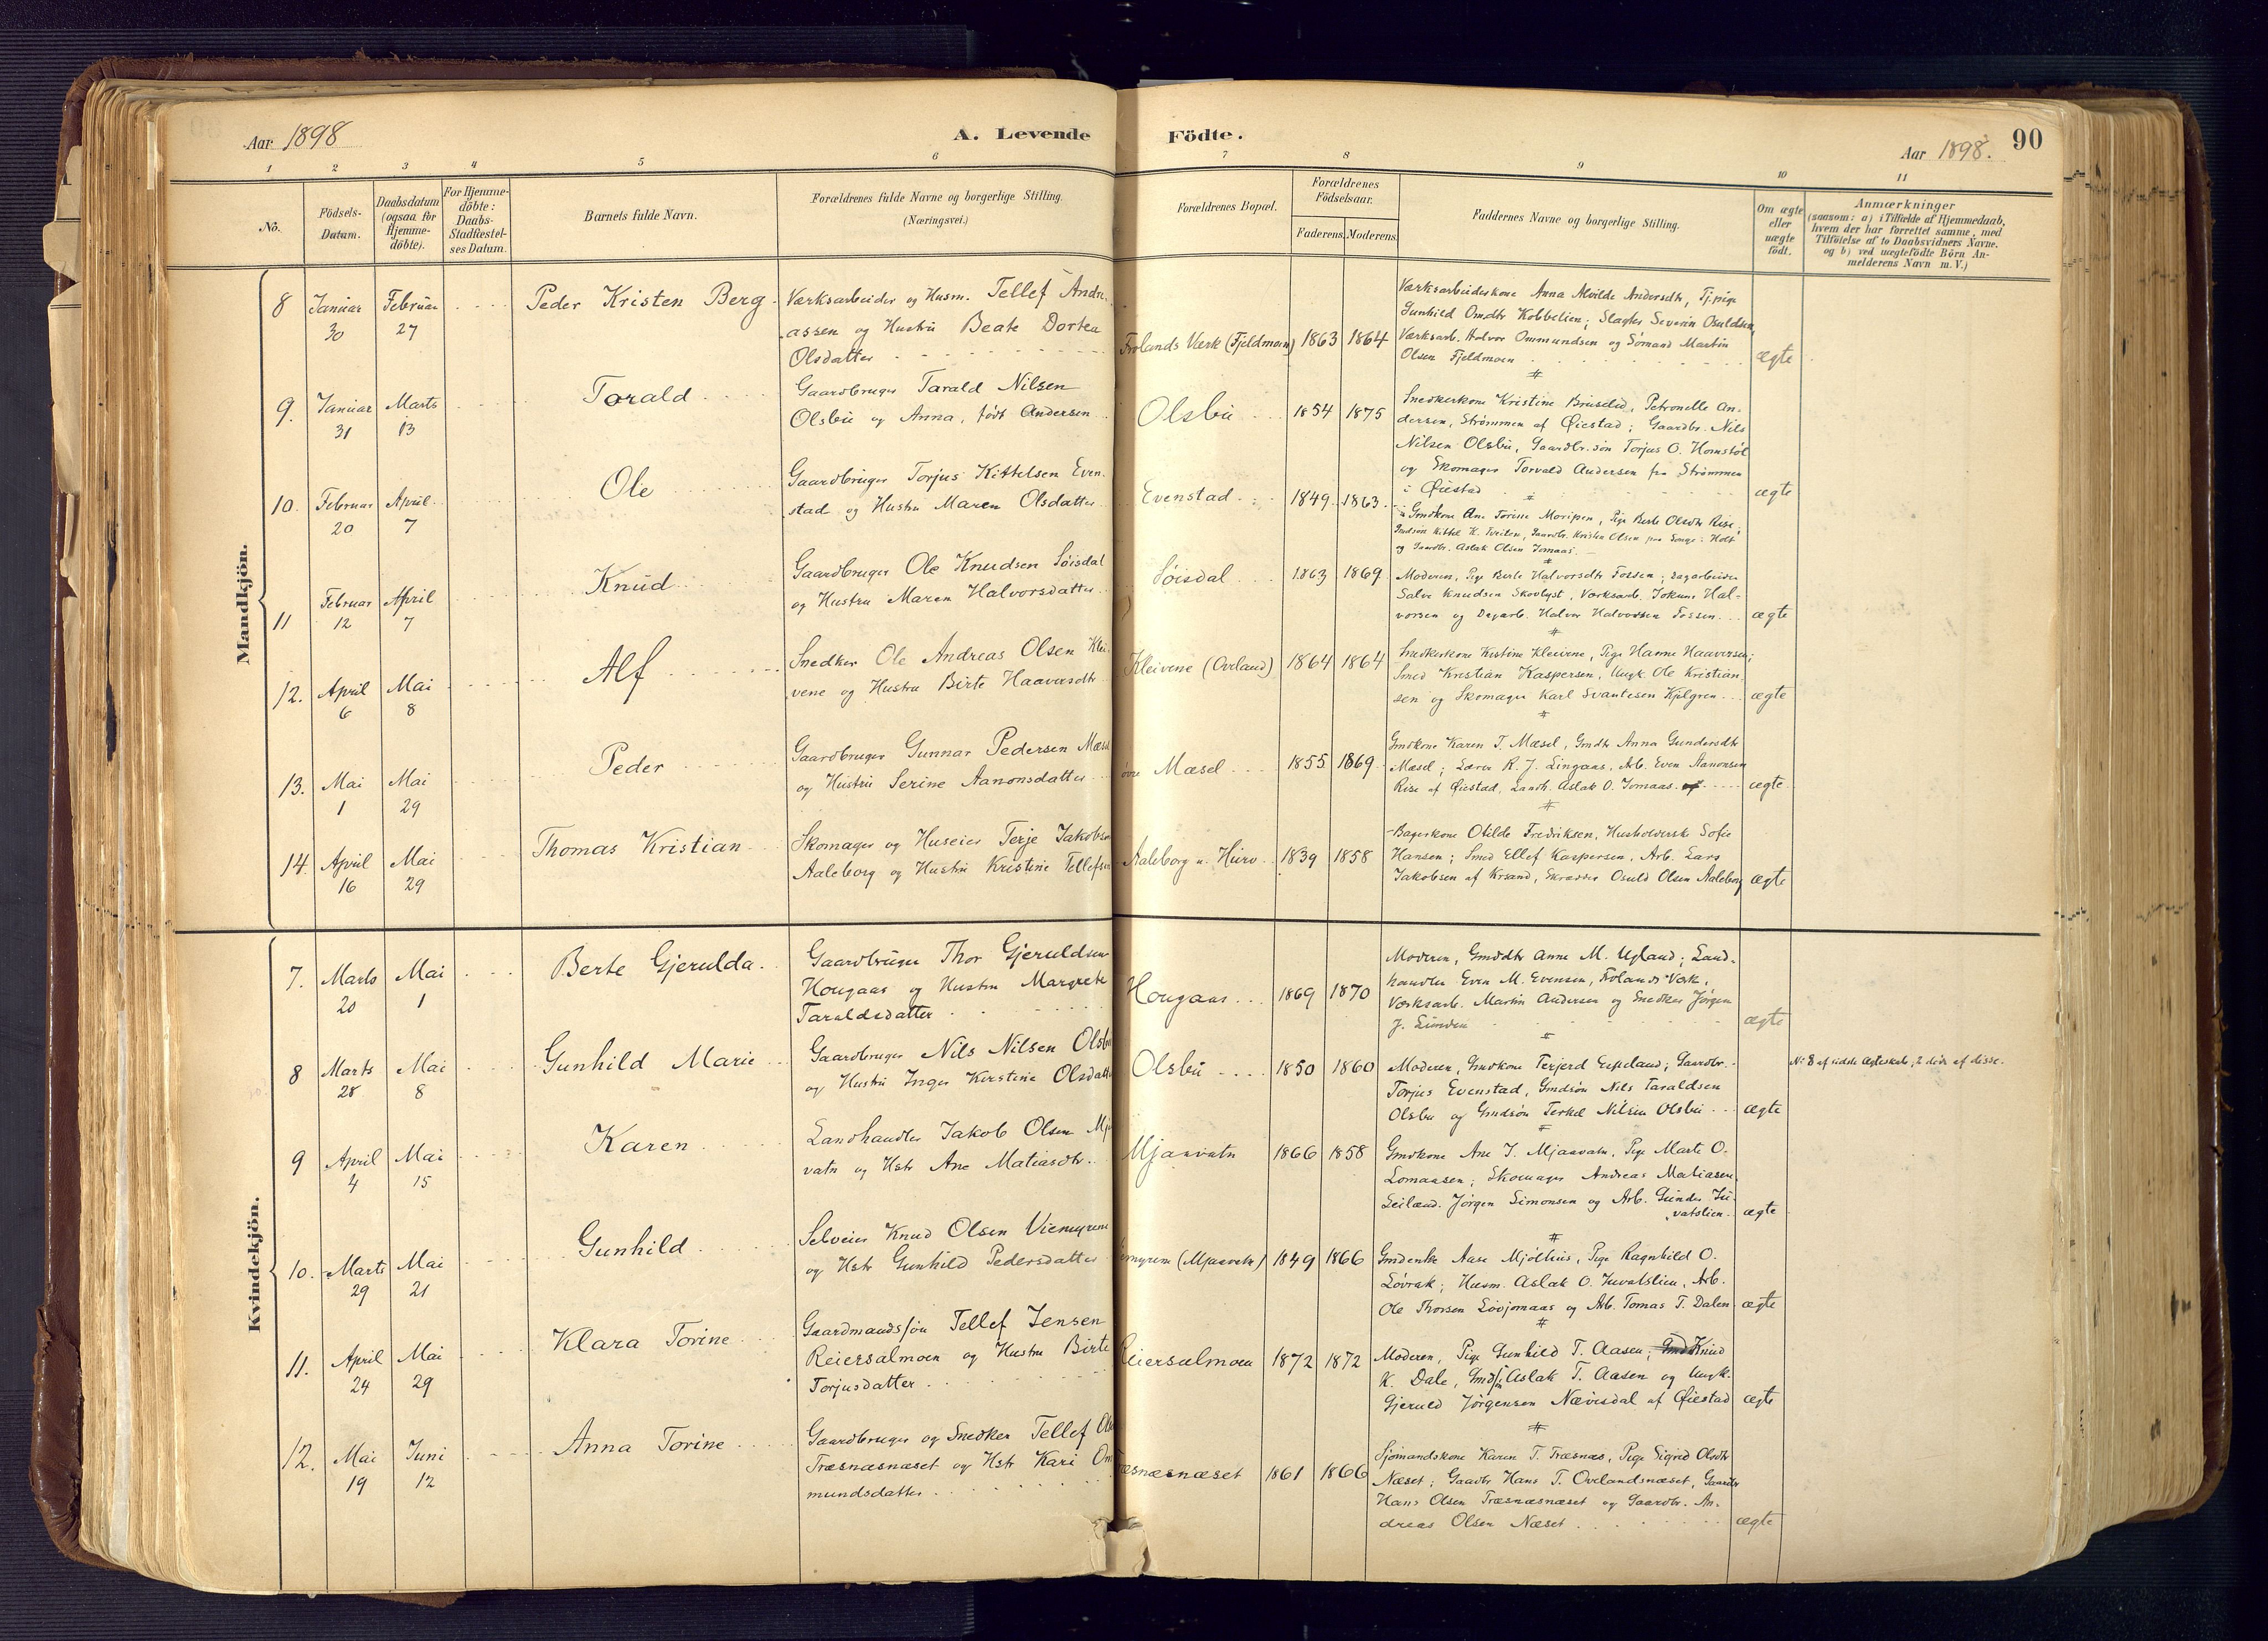 Aar 1898
A. Levende
Födte.
Aar 1898.
90
1 2 3 4 5 6 7 8 9 10 11
No.
Födsels-
Datum.
Daabsdatum
(ogsaa for
Hjemme-
döbte).
For Hjemme-
döbte:
Daabs-
Stadfæstel-
ses Datum.
Barnets fulde Navn.
Forældrenes fulde Navne og borgerlige Stilling.
(Næringsvei.)
Forældrenes Bopæl.
Forældrenes
Födselsaar.
Faderens. Moderens.
Faddernes Navne og borgerlige Stilling.
Om ægte
eller
uægte
födt.
Anmærkninger
(saasom: a) i Tilfælde af Hjemmedaab,
hvem der har forrettet samme, med
Tilföielse af to Daabsvidners Navne.
og b) ved uægtefödte Börn An-
melderens Navn m. V.)
Mandkjön.
8 Januar 30 Februar 27
Peder Kristen Berg
Værksarbeider og Husm. Tellef Andre-
assen og Hustru Beate Dortea
Olsdatter
Frolands Værk (Fjeldmoen) 1863 1864
Værksarbeiderskone Anna Alvilde Andersdtr, Tj.pige
Gunhild Omdtr Kobbelien; Slagter Severin Osuldsen,
Værksarb. Halvor Ommundsen og Sömand Martin
Olsen Fjeldmoen
ægte
9. Januar 31 Marts 13
Torald
Gaardbruger Tarald Nilsen
Olsbu og Anna, født Andersen
Olsbu 1854 1875
Snedkerkone Kristine Brusdal, Petronelle An-
dersen, Strømmen af Øiestad; Gaardbr. Nils
Nilsen Olsbu, Gaardbr.søn Torjus O. Homstøl
og Skomager Torvald Andersen fra Strømmen
i Øiestad
ægte
10. Februar 20 April 7
Ole
Gaardbruger Torjus Kittelsen Even-
stad og Hustru Maren Olsdatter
Evenstad 1849 1863
Gmdkone Ane Torine Moripen, Pige Berte Olsdtr Rise;
Gmdsøn Kittel K. Tveiten, Gaardbr. Kristen Olsen fra Songe i Holt
og Gaardbr. Aslak Olsen Jomaas
11 Februar 12 April 7
Knud
Gaardbruger Ole Knudsen Søisdal
og Hustru Maren Halvorsdatter
Søisdal 1863 1869
Moderen, Pige Berte Halvorsdtr Fossen; Sagarbeider
Salve Knudsen Skovlyst, Værksarb. Jokum Hal-
vorsen og Dagarb. Halvor Halvorsen Fossen
ægte
12. April 6 Mai 8
Alf
Snedker Ole Andreas Olsen Klei-
vene og Hustru Birte Haaversdtr
Kleivene (Oveland) 1864 1864
Snedkerkone Kristine Kleivene, Pige Hanne Haaversen;
Smed Kristian Kaspersen, Ungk. Ole Kristian-
sen og Skomager Karl Svantesen Kjelgren
ægte
13. Mai 1 Mai 29
Peder
Gaardbruger Gunnar Pedersen Mæsel
og Hustru Serine Aanonsdatter
øvre Mæsel 1855 1869
Gmdkone Karen T. Mæsel, Gmdtr Anna Gundersdtr
Mæsel; Lærer R. J. Lingaas, Arb. Even Aanonsen
Rise af Øiestad, Landh. Aslak O. Jomaas
ægte
14. April 16 Mai 29
Thomas Kristian
Skomager og Huseier Terje Jakobsen
Aaleborg og Hustru Kristine Tellefsen
Aaleborg u. Hurv 1839 1858
Bagerkone Otilde Fredriksen, Husholderske Sofie
Hansen; Smed Ellef Kaspersen, Arb. Lars
Jakobsen af Krsand, Skrædder Osuld Olsen Aaleborg
ægte
Kvindekjön.
7. Marts 20 Mai 1
Berte Gjerulda
Gaardbruger Thor Gjeruldsen
Hougaas og Hustru Margrete
Taraldsdatter
Hougaas 1869 1870
Moderen, Gmddtr Anne M. Ugland; Land-
handler Even M. Evensen, Frolands Værk,
Værksarb. Martin Andersen og Snedker Jørgen
J. Lunden
ægte
8 Marts 28 Mai 8
Gunhild Marie
Gaardbruger Nils Nilsen Olsbu
og Hustru Inger Kirstine Olsdatter
Olsbu 1850 1860
Moderen, Gmdkone Terjerd Espeland; Gaardbr.
Torjus Evenstad, Gmdsøn Nils Taraldsen
Olsbu og Gmdsøn Terkel Nilsen Olsbu
ægte
No 8 af sidste Ægteskab, 2 døde af disse.
9 April 4 Mai 15
Karen
Landhandler Jakob Olsen Mjaa-
vatn og Hstr Ane Matiasdtr
Mjaavatn 1866 1858
Gmdkone Ane J. Mjaavatn, Pige Marte O.
Lomaasen; Skomager Andreas Matiasen
Leilænd. Jørgen Simonsen og Arb. Gunder Ju-
vatslien
ægte
10. Marts 29 Mai 21
Gunhild
Selveier Knud Olsen Viemyrene
og Hstr Gunhild Pedersdatter
Viemyrene (Mjaavatn) 1849 1866
Gmdenke Aase Mjølhus, Pige Ragnhild O.
Løvrak; Husm. Aslak O. Juvatslien, Arb.
Ole Thorsen Løvjomaas og Arb. Tomas T. Dalen
ægte
11. April 24 Mai 29
Klara Torine
Gaardmandssøn Tellef Jensen
Reiersalmoen og Hustru Birte
Torjusdatter
Reiersalmoen 1872 1872
Moderen, Pige Gunhild T. Aasen; Knud
K. Dale, Gmdsøn Aslak T. Aasen og Ungk.
Gjeruld Jørgensen Nævisdal af Øiestad
ægte
12. Mai 19 Juni 12
Anna Torine
Gaardbruger og Snedker Tellef Olsen
Træsnæsnæset og Hstr Kari Om-
mundsdatter
Træsnæsnæset 1861 1866
Sjømandskone Karen T. Træsnæs, Pige Sigrid Olsdtr
Næset; Gaardbr Hans T. Ovelandsnæset, Gaardbr
Hans Olsen Træsnæsnæset og Gaardbr. An-
dreas Olsen Næset
ægte